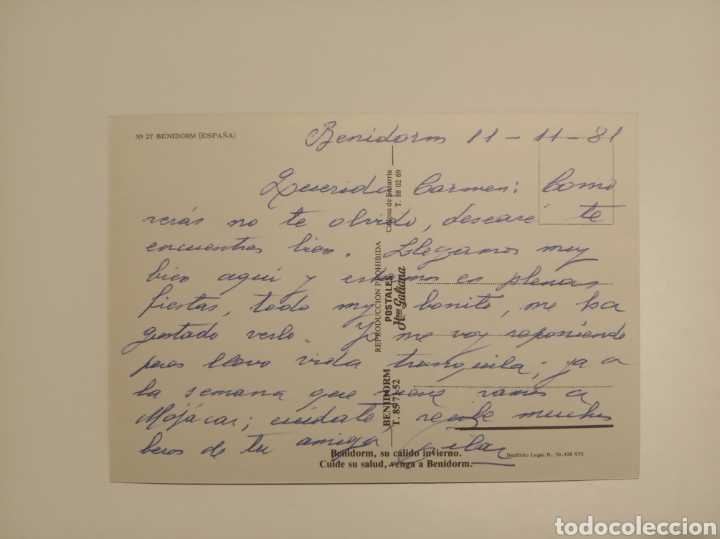 Nº 27 BENIDORM (ESPAÑA)
Benidorm 11-11-81
Querida Carmen: Como
verás no te olvido, desearé te
encuentres bien. Llegamos muy
bien aquí y estamos en plenas
fiestas, todo muy bonito, me ha
gustado verlo. Yo me voy reponiendo
pues llevo vida tranquila; ya a
la semana que viene vamos a
Mojácar; cuídate, recibe muchos
besos de tu amiga Pilar
REPRODUCCION PROHIBIDA
T. 88 02 69
POSTALES
Hnos Galiana
BENIDORM
T. 85 71 52
Benidorm, su cálido invierno.
Cuide su salud, venga a Benidorm.
Depósito Legal B.
XVI
todocoleccion